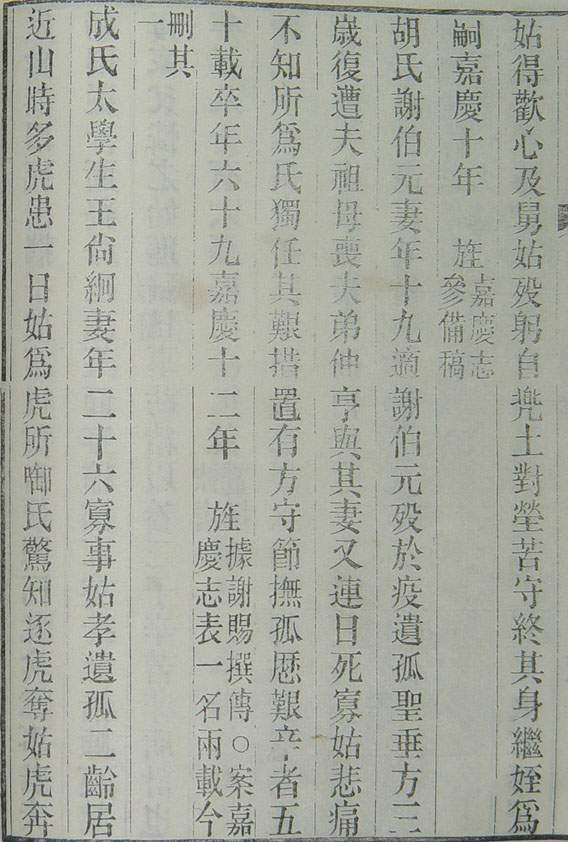 姑得歡心及舅姑殁躬自㧱土對塋苦守終其身繼姪爲
嗣嘉慶十年　旌嘉慶志
參備稿
胡氏謝伯元妻年十九適謝伯元殁於疫遺孤聖垂方三
歲復遭夫祖母喪夫弟仲亨與其妻又連日死寡姑悲痛
不知所爲氏獨任其艱措置有方守節撫孤歷艱辛者五
十載卒年六十九嘉慶十二年　旌據謝賜撰傳○案嘉
慶志表一名兩載今
刪其
一
成氏太學生王尙絅妻年二十六寡事姑孝遺孤二齡居
近山時多虎患一日姑爲虎所啣氏驚知逐虎奪姑虎奔